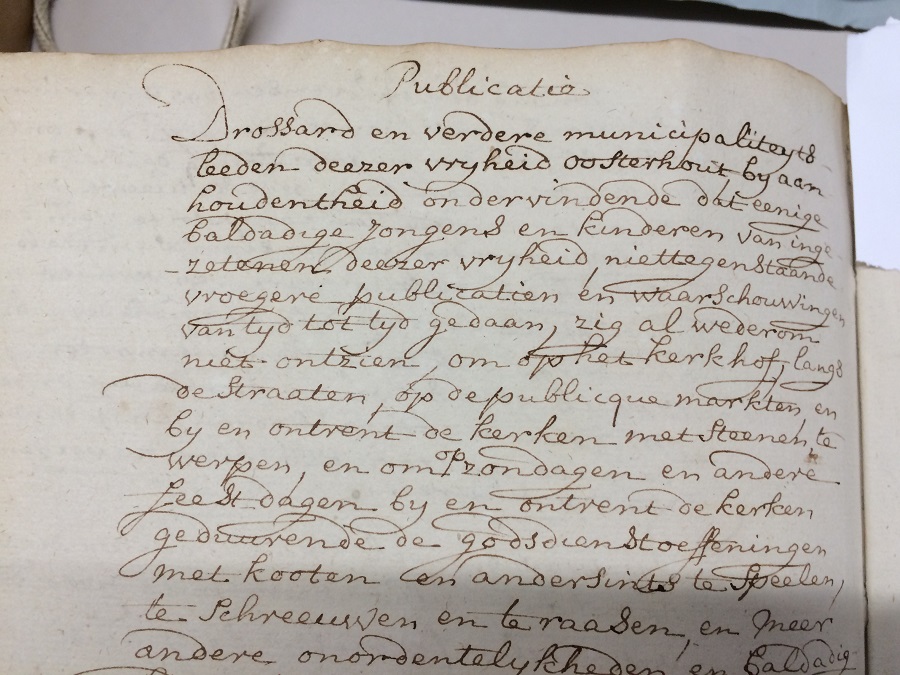 Publicatie
Drossard en verdere municipaliteyts
leeden deezer vryheid oosterhout, by aan
houdentheid ondervindende dat eenige
baldadige jongens en kinderen van inge
-zetenen deezer vryheid, niettegenstaande
vroegere publicatien en waarschouwingen
van tyd tot tyd gedaan, zig al wederom
niet ontzien, om op het kerkhof, langs
de straaten, op de publicque markten, en
by en ontrent de kerken met steenen te
werpen, en om op zondagen en andere
feestdagen by en ontrent de kerken
geduurende de godsdienstoeffeningen
met kooten en andersints te speelen,
te schreeuwen en te raasen, en meer
andere onordentelykheden en baldadig